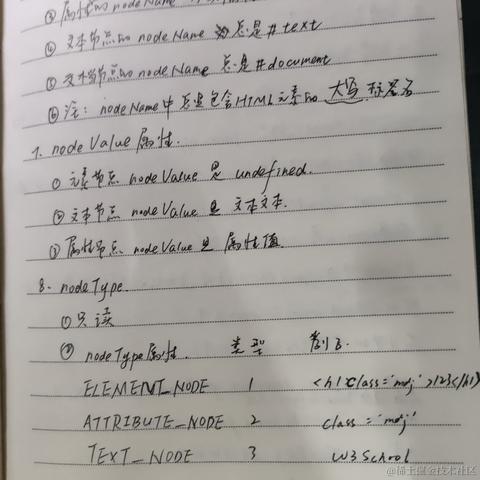 ③ 属性的 nodeName
④ 文本节点的 nodeName 总是 #text
⑤ 文档节点的 nodeName 总是 #document
⑥ 注: nodeName 中总是包含HTML元素的 大写 标签名
7. nodeValue 属性.
① 元素节点 nodeValue 是 undefined.
② 文本节点 nodeValue 是 文本文本.
③ 属性节点 nodeValue 是 属性值.
8. nodeType.
① 只读
② nodeType属性. 类型 例子.
ELEMENT_NODE 1 <h1 class='mdj'>123</h1>
ATTRIBUTE_NODE 2 class='mdj'
TEXT_NODE 3 W3School
@稀土掘金技术社区